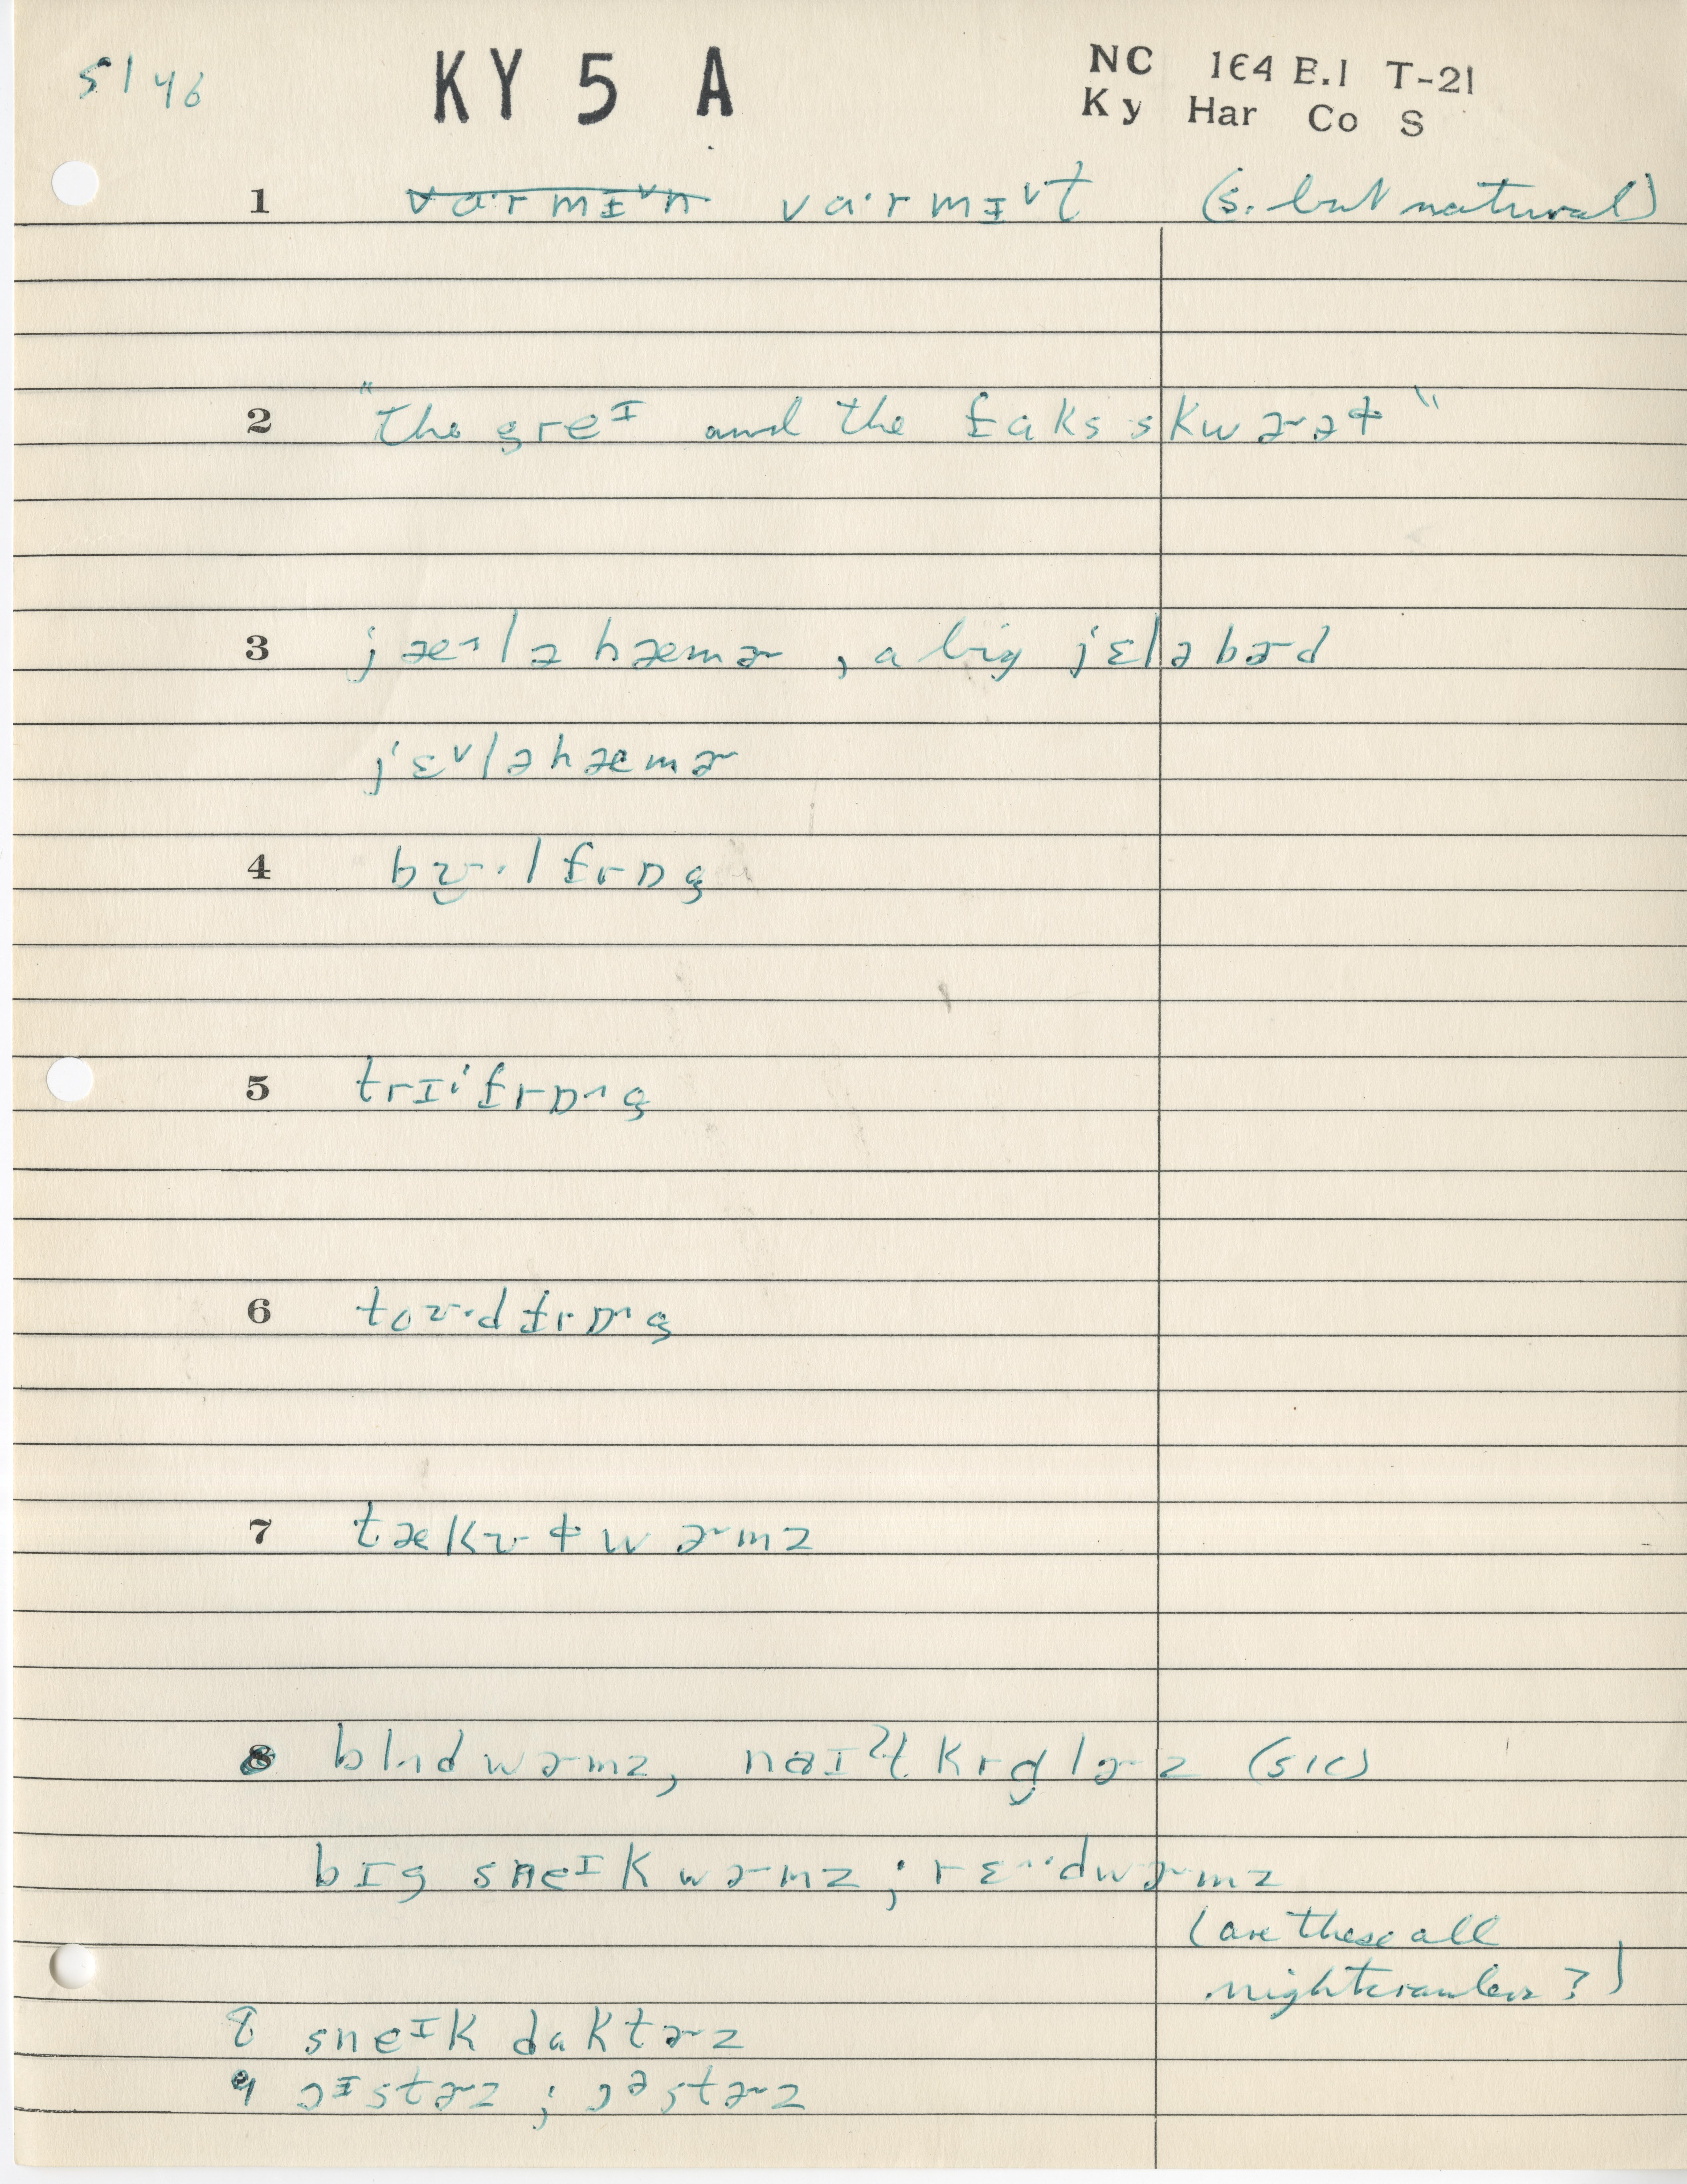 5146 KY 5 A NC 164 E.1 T-21
Ky Har Co S
1 vɑ·rmɪᵛn vɑ·rmɪᵛt (s. but natural)
2 "the greᶦ and the fɑks skwɚəɫ"
3 jæ^lə hæmɚ, a big jɛləbɚd
jɛᵛləhæmɚ
4 bʊ·lfrɒg
5 trɪifrɒ^g
6 toʊ·dfrɒ^g
7 tækʊɫwɚmz
8 wɚmz, (sic)
bɪg sneᶦk wɚmz; rɛ^·dwɚmz
(are these all
nightcrawlers?)
8 sneᶦk dɑktɚz
9 ɔᶦstɚz; ɔᵊstɚz